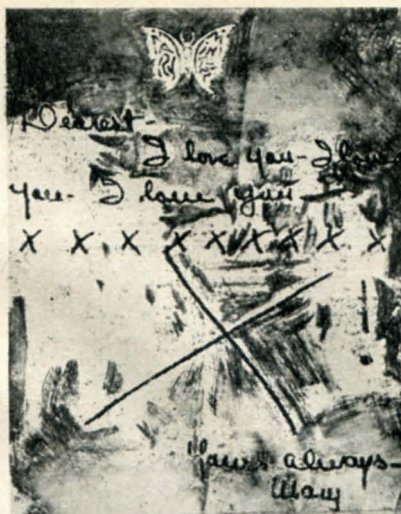 Dearest-
I love you - I love
you - I love you -
X X X X X X X X X
X !
Yours always -
Mary